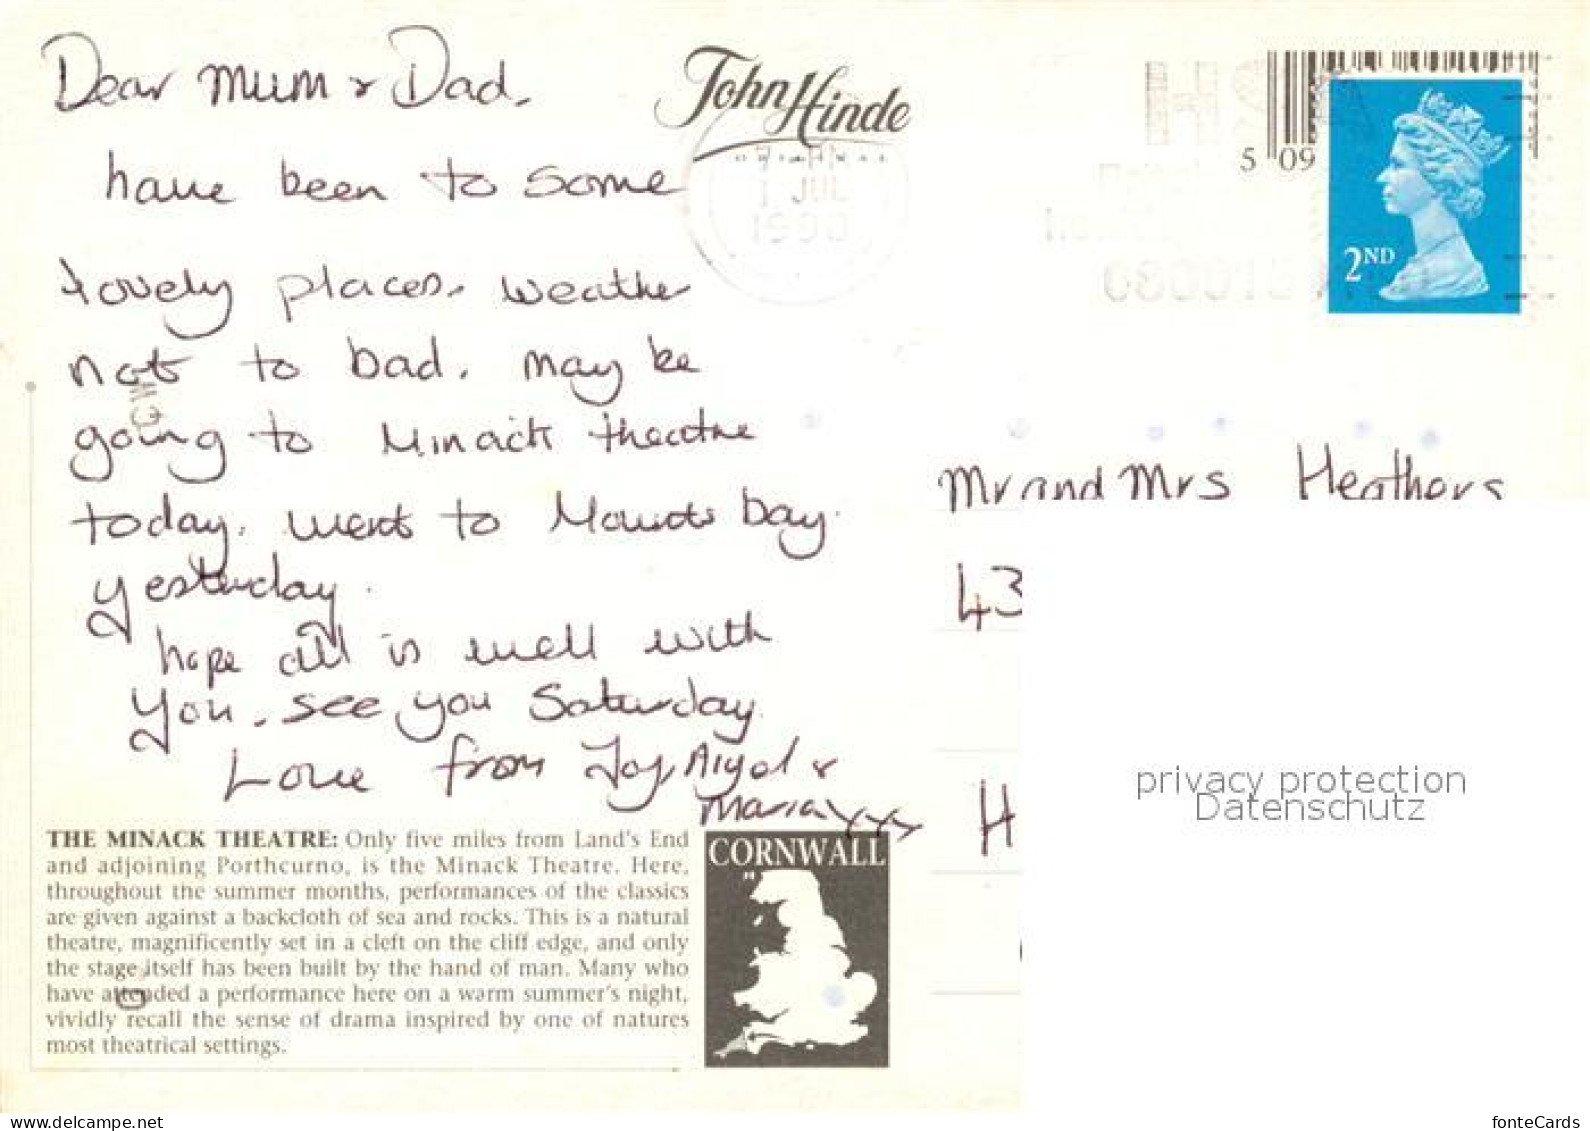 Dear Mum & Dad.
have been to some
lovely places. Weather
not to bad. May be
going to Minack theatre
today. Went to Mounts bay.
yesterday.
hope all is well with
you. see you Saturday.
Love from Joy, Nigel &
Maria xxxx
John Hinde
ORIGINAL
JUL
5 09
2ND
Mr and Mrs Heathers
43
H
privacy protection
Datenschutz
THE MINACK THEATRE: Only five miles from Land's End
and adjoining Porthcurno, is the Minack Theatre. Here,
throughout the summer months, performances of the classics
are given against a backcloth of sea and rocks. This is a natural
theatre, magnificently set in a cleft on the cliff edge, and only
the stage itself has been built by the hand of man. Many who
have attended a performance here on a warm summer's night,
vividly recall the sense of drama inspired by one of natures
most theatrical settings.
CORNWALL
www.oldthing.net
fonteCards